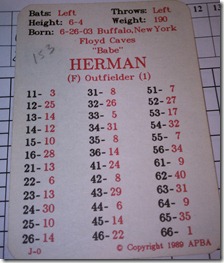 12 12
Bats: Left Throws: Left
Height: 6-4 Weight: 190
Born: 6-26-03 Buffalo, New York
Floyd Caves
"Babe"
HERMAN
(F) Outfielder (1)
153
11- 3 31- 8 51- 7
12- 25 32- 26 52- 27
13- 14 33- 1 53- 17
14- 30 34- 31 54- 32
15- 10 35- 11 55- 10
16- 28 36- 24 56- 29
21- 30 41- 24 61- 31
22- 13 42- 23 62- 12
23- 13 43- 29 63- 31
24- 12 44- 8 64- 32
25- 10 45- 14 65- 35
26- 14 46- 22 66- 1
J-0 © Copyright 1989 APBA